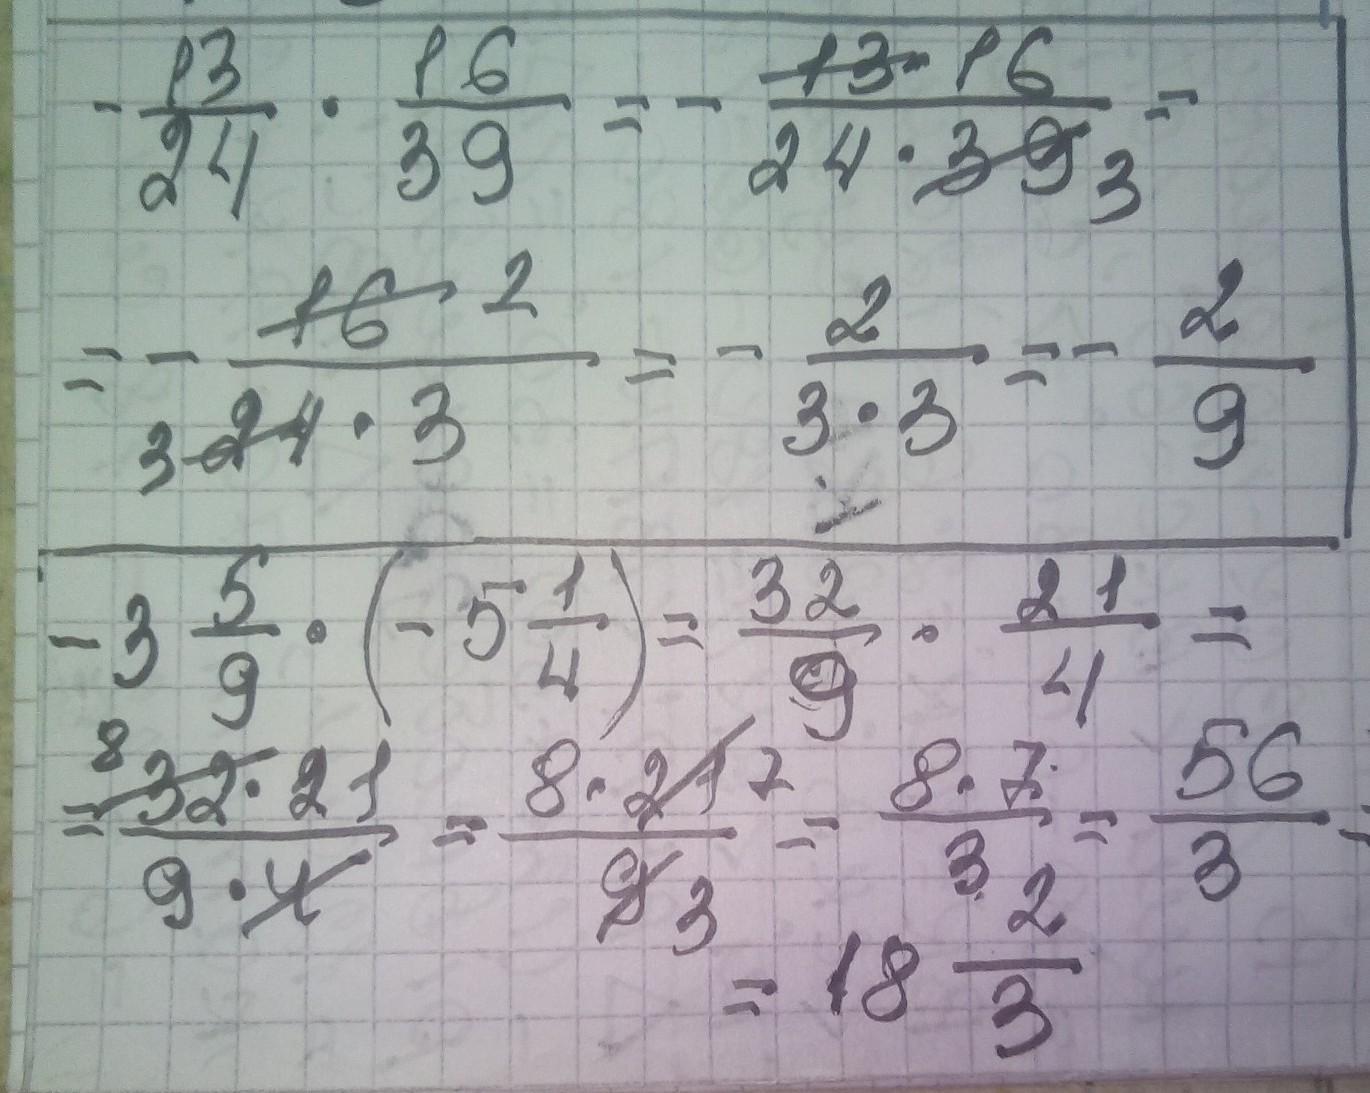 - 13/24 · 16/39 = - 13·16/24·39 3 =
= - 16 2/3 24·3 = - 2/3·3 = - 2/9
-3 5/9 · (-5 1/4) = 32/9 · 21/4 =
= 8 32·21/9·4 = 8·21 7/9 3 = 8·7/3 = 56/3 =
= 18 2/3